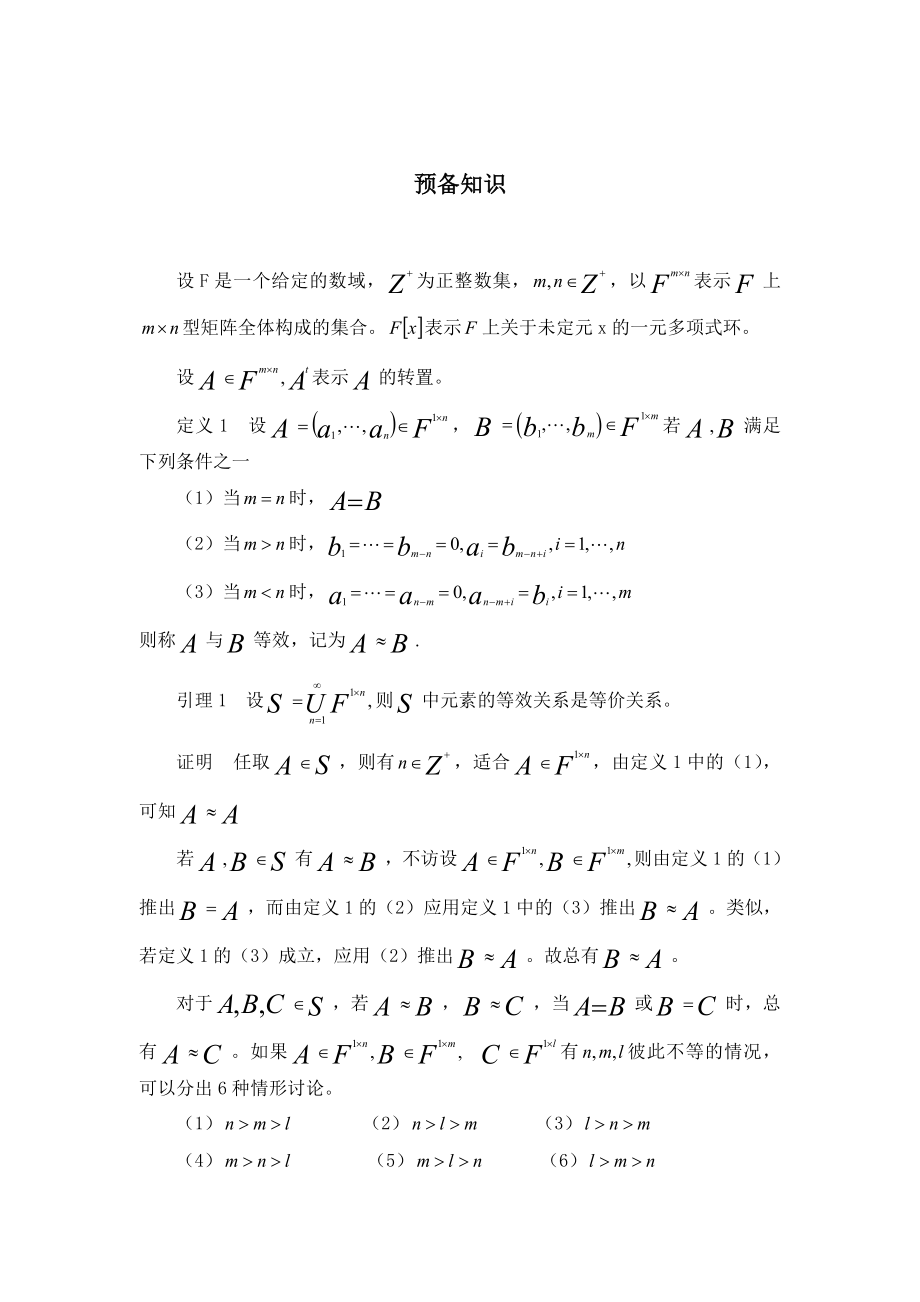 预备知识
设 F 是一个给定的数域，Z⁺为正整数集，m,n∈Z⁺，以 F^{m×n} 表示 F 上
m×n型矩阵全体构成的集合。F[x]表示F上关于未定元 x 的一元多项式环。
设 A∈F^{m×n},A^t表示 A 的转置。
定义 1 设 A=(a₁,⋯,aₙ)∈F^{1×n}，B=(b₁,⋯,b_m)∈F^{1×m}若 A,B 满足
下列条件之一
（1）当m=n时，A=B
（2）当m>n时，b₁=⋯=b_{m-n}=0,a_i=b_{m-n+i},i=1,⋯,n
（3）当m<n时，a₁=⋯=a_{n-m}=0,a_{n-m+i}=b_i,i=1,⋯,m
则称 A 与 B 等效，记为 A≈B.
引理 1 设 S=U_{n=1}^{∞}F^{1×n},则 S 中元素的等效关系是等价关系。
证明 任取 A∈S，则有n∈Z⁺，适合 A∈F^{1×n}，由定义 1 中的（1），
可知 A≈A
若 A,B∈S 有 A≈B，不访设 A∈F^{1×n},B∈F^{1×m},则由定义 1 的（1）
推出 B=A，而由定义 1 的（2）应用定义 1 中的（3）推出 B≈A。类似，
若定义 1 的（3）成立，应用（2）推出 B≈A。故总有 B≈A。
对于 A,B,C∈S，若 A≈B，B≈C，当 A=B 或 B=C 时，总
有 A≈C。如果 A∈F^{1×n},B∈F^{1×m}, C∈F^{1×l}有n,m,l彼此不等的情况，
可以分出 6 种情形讨论。
（1）n>m>l （2）n>l>m （3）l>n>m
（4）m>n>l （5）m>l>n （6）l>m>n